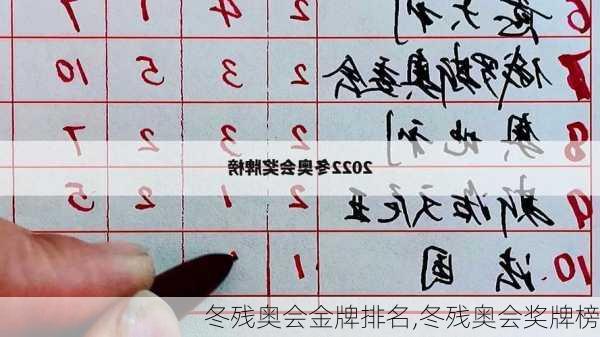 6 意大利 2 4 1 7
7 俄罗斯奥委会 2 3 5 10
8 奥地利 2 3 2 7
2022冬奥会奖牌榜
9 斯洛文尼亚 2 1 2 5
10 法国 1
冬残奥会金牌排名,冬残奥会奖牌榜